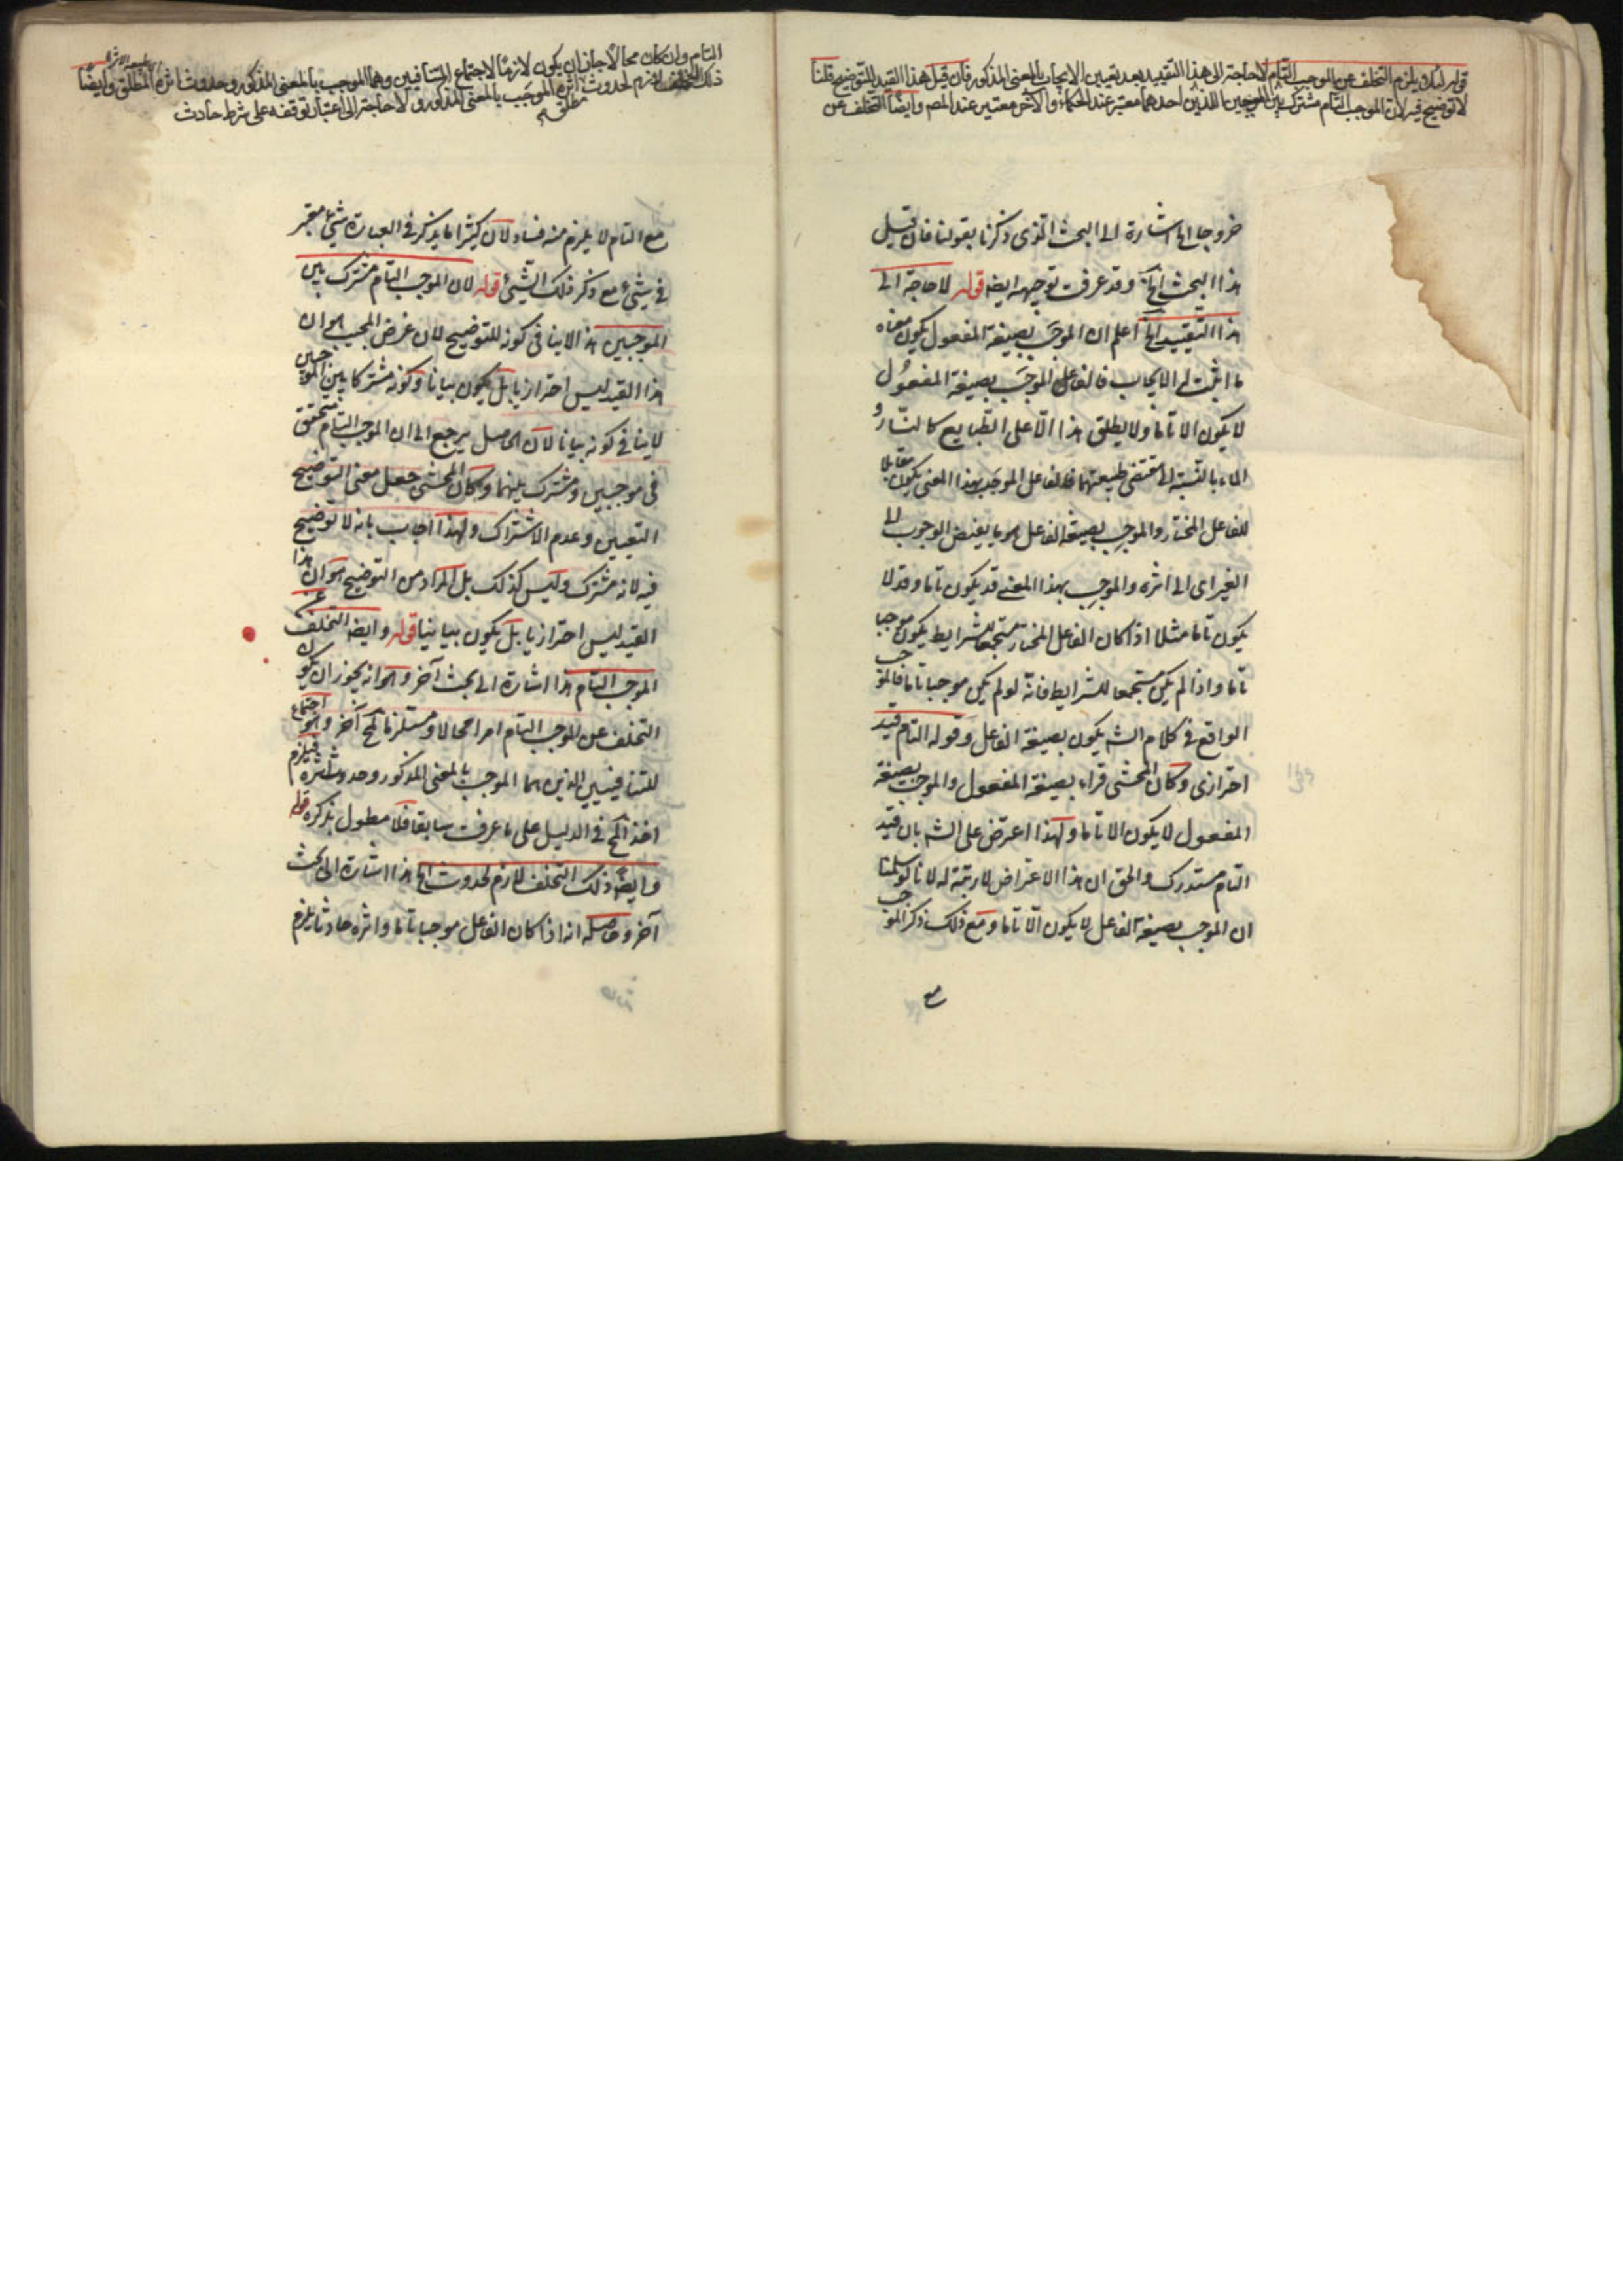 قوله لئلا يلزم التخلف عن الموجب التام لا حاجة الى هذا التقييد بعد تعيين الايجاب بالمعنى المذكور فان قيل هذا القيد للتوضيح قلنا
لا توضيح فيه لان الموجب التام مشترك بين الموجبين اللذين احدهما معتبر عند الحكماء والآخر معتبر عند المص وايضا التخلف عن
خروجا الخ اشارة الى البحث الذى ذكرنا بقولنا فان قيل
هذا البحث الخ وقد عرفت توجيهه ايضا قوله لا حاجة الى
هذا التقييد الخ اعلم ان الموجَب بصيغة المفعول يكون معناه
ما اثبت له الايجاب فالفاعل الموجَب بصيغة المفعول
لا يكون الا تاما ولا يطلق هذا الّا على الطبايع كالنار و
الماء بالنسبة الى مقتضى طبيعتهما فالفاعل الموجَب بهذا المعنى يكون مقابلا
للفاعل المختار والموجِب بصيغة الفاعل هو ما يفيض الوجوب الى
الغير اى الى اثره والموجِب بهذا المعنى قد يكون تاما وقد لا
يكون تاما مثلا اذا كان الفاعل المختار مستجمعا للشرايط يكون موجبا
تاما واذا لم يكن مستجمعا للشرايط فانه لو لم يكن موجبا تاما فالموجب
الواقع فى كلام الشه يكون بصيغة الفاعل وقوله التام قيد
احترازى وكان المحشى قراء بصيغة المفعول والموجب بصيغة
المفعول لا يكون الا تاما ولهذا اعترض على الشه بان قيد
التام مستدرك والحق ان هذا الاعتراض لا رتبة له لانا لو سلمنا
ان الموجب بصيغة الفاعل لا يكون الّا تاما ومع ذلك ذكر الموجب
مع
التام وان كان محالا جاز ان يكون لازما لاجتماع المتنافيين وهما الموجب بالمعنى المذكور وحدوث اثره المطلق وايضا
ذلك التخلف لازم لحدوث اثره الموجب بالمعنى المذكور ولا حاجة الى اعتبار توقفه على شرط حادث
مطلق
مع التام لا يلزم منه فساد لان كثيرا ما يذكر فى العبارة شيئ معتبر
فى شيئ مع ذكر ذلك الشيئ قوله لان الموجب التام مشترك بين
الموجبين هذا لا ينافى كونه للتوضيح لان غرض المجيب هو ان
هذا القيد ليس احترازيا بل يكون بيانا وكونه مشتركا بين الموجبين
لا ينافى كونه بيانا لان الحاصل يرجع الى ان الموجب التام متحقق
فى موجبين ومشترك بينهما وكان المحشى جعل معنى التوضيح
التعيين وعدم الاشتراك ولهذا اجاب بانه لا توضيح
فيه لانه مشترك وليس كذلك بل المراد من التوضيح هو ان هذا
القيد ليس احترازيا بل يكون بيانيا قوله وايضا التخلف عن
الموجب التام هذا اشارة الى بحث آخر وهو انه يجوز ان يكون
التخلف عن الموجب التام امرا محالا ومستلزما لمح آخر وهو اجتماع
المتنافيين الذين هما الموجب بالمعنى المذكور وحدوث اثره فيلزم
اخذ المح فى الدليل على ما عرفت سابقا فلا مطول بذكره قوله
وايضا ذلك التخلف لازم لحدوث الخ هذا اشارة الى بحث
آخر وحاصله انه اذا كان الفاعل موجبا تاما واثره حادثا يلزم